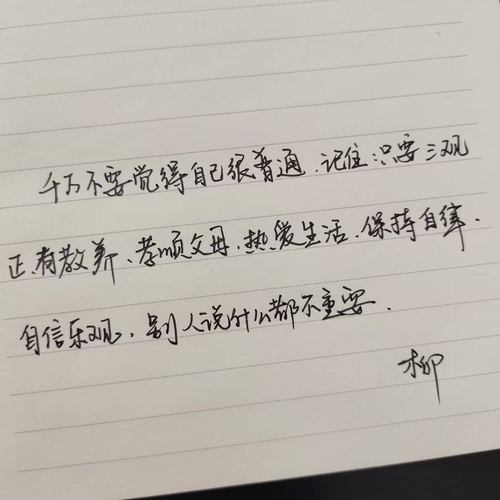 千万不要觉得自己很普通，记住：只要三观
正、有教养、孝顺父母，热爱生活、保持自律、
自信乐观，别人说什么都不重要．
柳